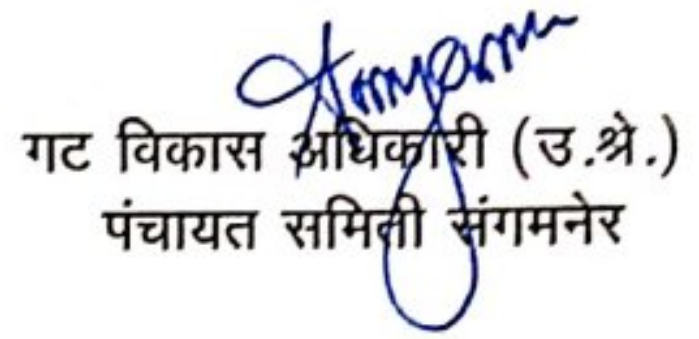 गट विकास अधिकारी (उ.श्रे.)
पंचायत समिती संगमनेर